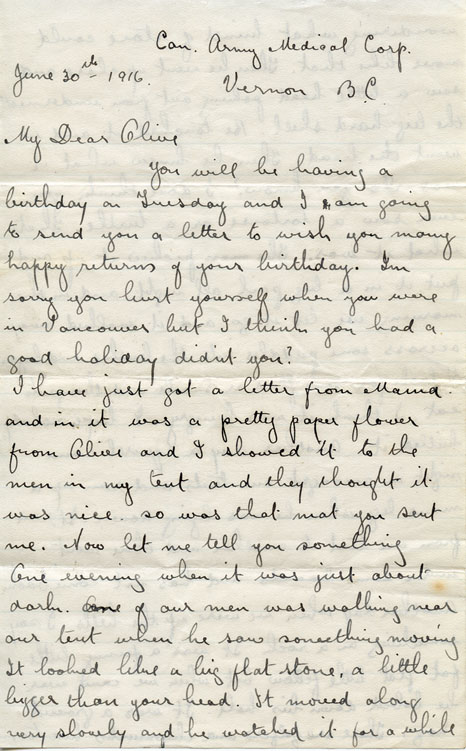 Can. Army Medical Corp.
June 30th - 1916.
Vernon B.C.
My Dear Olive
You will be having a
birthday on Tuesday and I am going
to send you a letter to wish you many
happy returns of your birthday. Im
sorry you hurt yourself when you were
in Vancouver but I think you had a
good holiday didnt you?
I have just got a letter from Mama.
and in it was a pretty paper flower
from Olive and I showed it to the
men in my tent and they thought it
was nice. so was that mat you sent
me. Now let me tell you something
One evening when it was just about
dark. One of our men was walking near
our tent when he saw something moving
It looked like a big flat stone, a little
bigger than your head. It moved along
very slowly and he watched it for a while